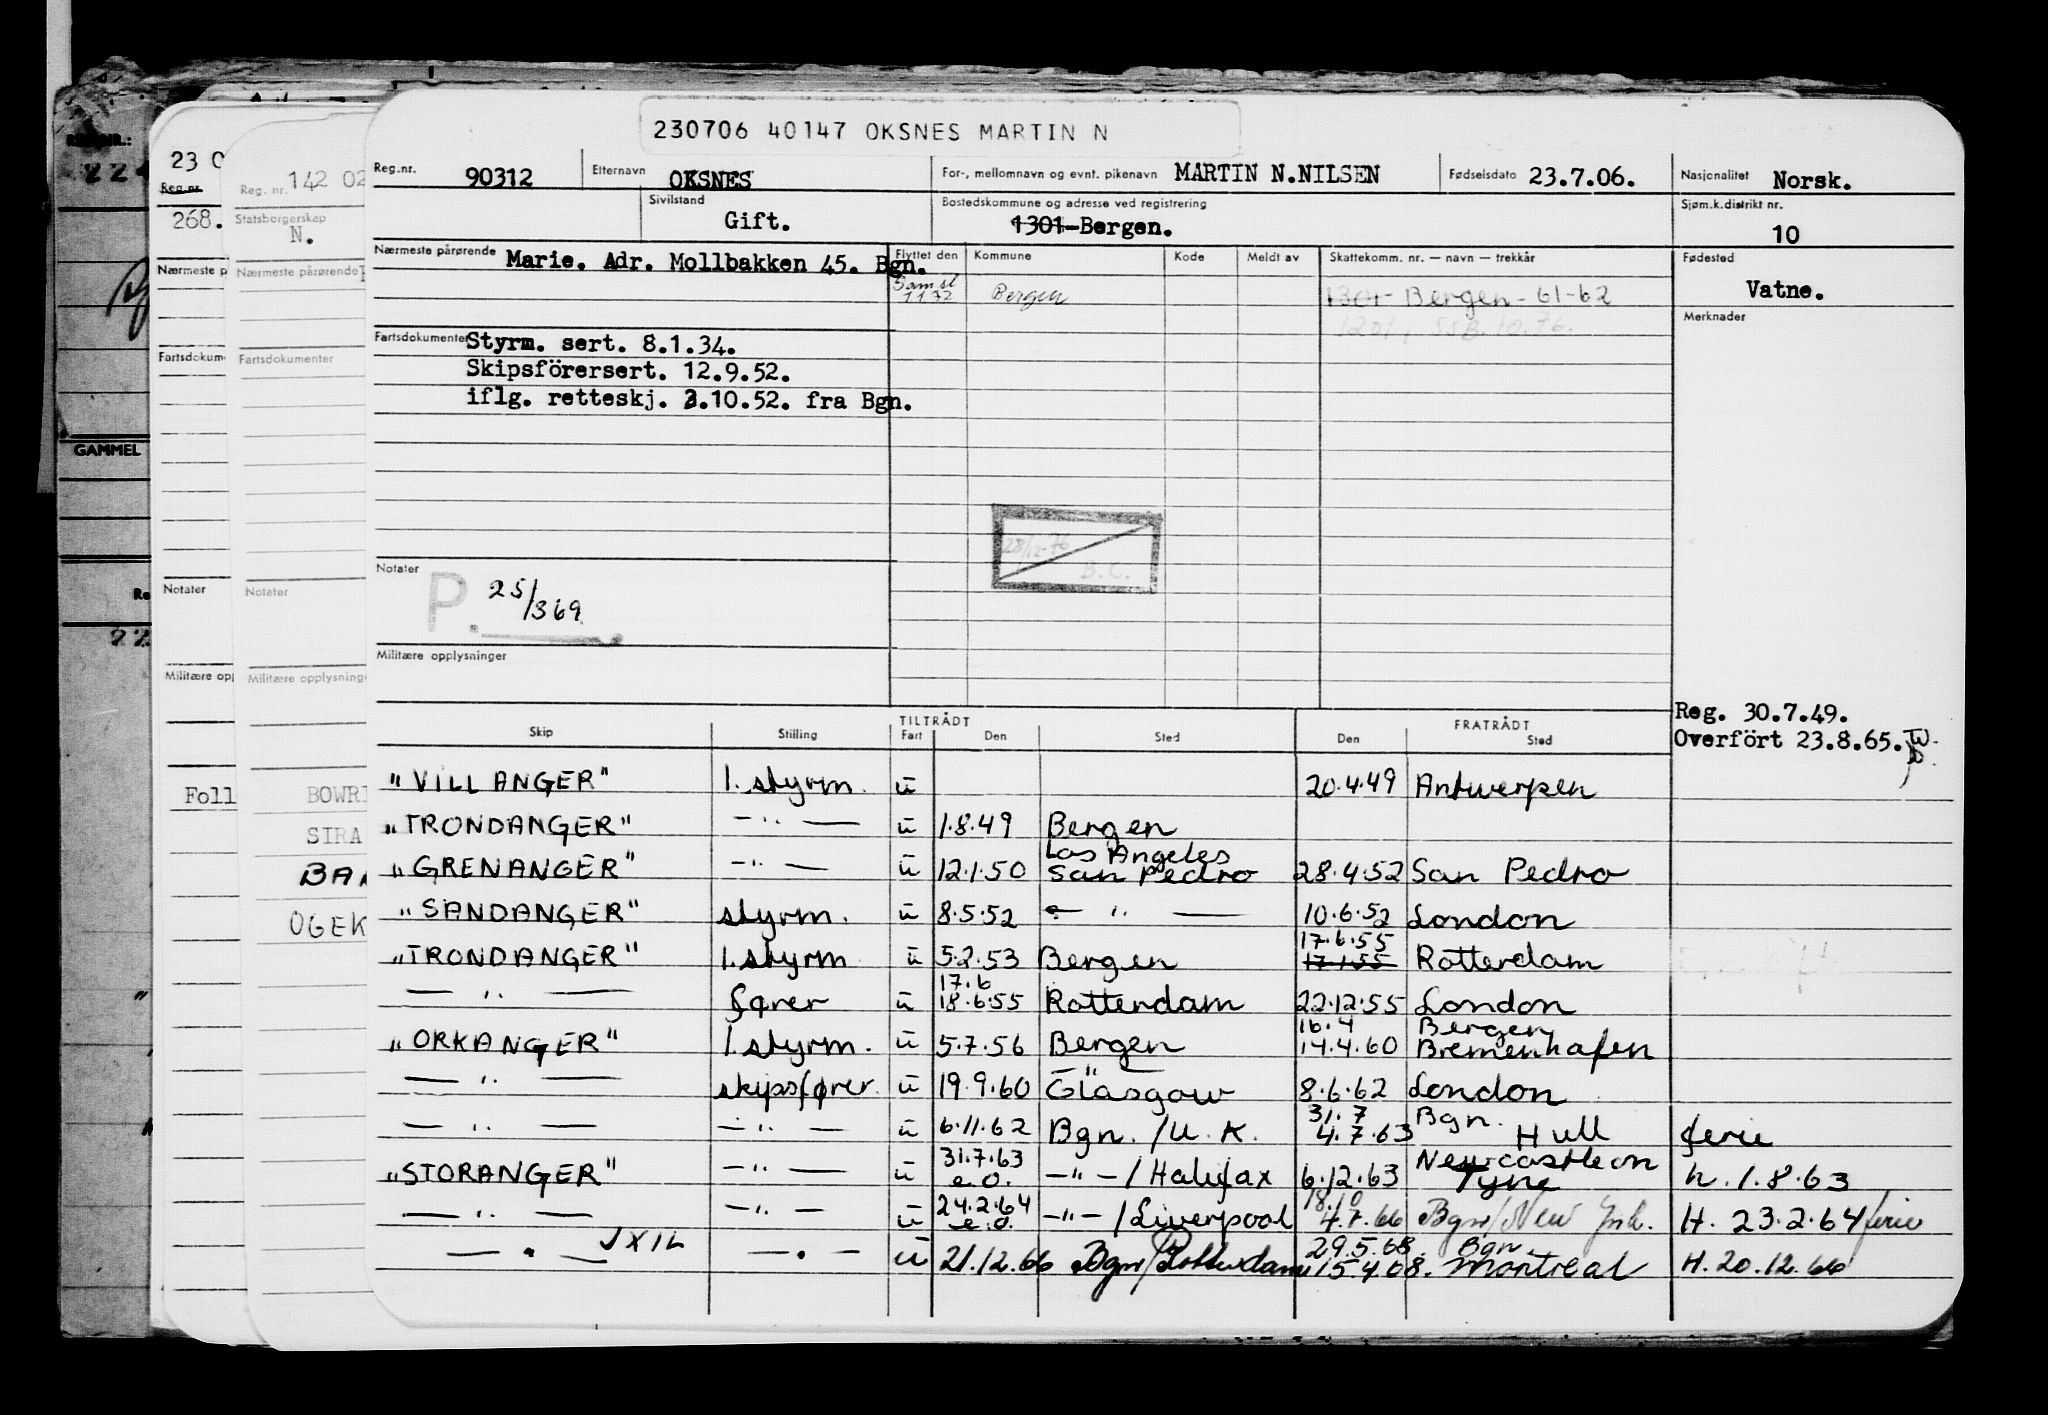 230706 40147 OKSNES MARTIN N
Reg.nr. 90312 Etternavn OKSNES For-, mellomnavn og evnt. pikenavn MARTIN N.NILSEN Fødselsdato 23.7.06. Nasjonalitet Norsk.
Sivilstand Gift. Bostedskommune og adresse ved registrering 1301-Bergen. Sjøm.k.distrikt nr. 10
Nærmeste pårørende Marie. Adr. Mollbakken 45. Bgn. Flyttet den Kommune Kode Meldt av Skattekomm. nr. — navn — trekkår Fødested Vatne.
Bergen 1301- Bergen - 61-62
Merknader
Fartsdokumenter Styrm. sert. 8.1.34.
Skipsförersert. 12.9.52.
iflg. retteskj. 3.10.52. fra Bgn.
28/12-76
B.C.
Notater P. 25/369
Militære opplysninger
Reg. 30.7.49.
Overført 23.8.65.
TILTRÅDT FRATRÅDT
Skip Stilling Fart Den Sted Den Sted
"VILLANGER" 1. styrm. u 20.4.49 Antwerpen
"TRONDANGER" —"— u 1.8.49 Bergen
"GRENANGER" —"— u 12.1.50 Los Angeles San Pedro 28.4.52 San Pedro
"SANDANGER" styrm. u 8.5.52 —"— 10.6.52 London
"TRONDANGER" 1. styrm u 5.2.53 Bergen 17.6.55 17.1.55 Rotterdam
—"— fører u 17.6 18.6.55 Rotterdam 22.12.55 London
"ORKANGER" 1. styrm. u 5.7.56 Bergen 16.4 14.4.60 Bergen Bremenhafen
—"— skipsfører. u 19.9.60 Glasgow 8.6.62 London
—"— —"— u 6.11.62 Bgn. / U.K. 31.7 4.7.63 Bgn. Hull ferie
"STORANGER" —"— u 31.7.63 e.o. —"— / Halifax 6.12.63 Newcastle on Tyne h. 1.8.63
—"— —"— u 24.2.64 e.o. —"— / Liverpool 18/10 4.7.66 Bgn / New York. H. 23.2.64 ferie
—"— JXIL —"— u 21.12.66 Bgn / Rotterdam 29.5.68. 15.4.68. Bgn. Montreal H. 20.12.66
23 0
Reg.nr.
268.
Nærmeste p
Fartsdokum
Notater
Militære opp
Foll
Reg. nr. 142 02
Statsborgerskap
N.
Nærmeste pårørende
Fartsdokumenter
Notater
Militære opplysninge
BOWRI
SIRA
BAN
OGEK
GAMMEL